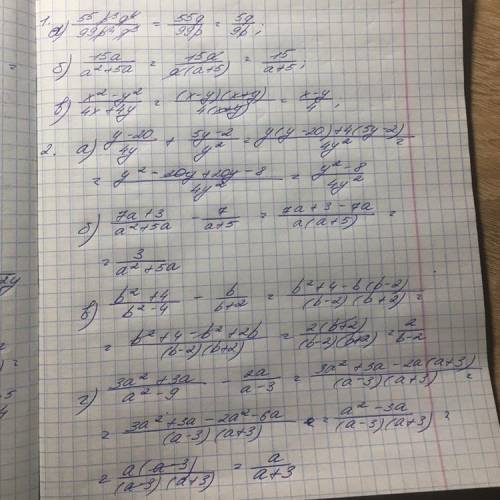 1. а) 55p³q⁴/99p⁴q³ = 55q/99p = 5q/9p;
б) 15a/(a²+5a) = 15a/(a(a+5)) = 15/(a+5);
в) (x²-y²)/(4x+4y) = (x-y)(x+y)/(4(x+y)) = (x-y)/4;
2. а) (y-20)/4y + (5y-2)/y² = (y(y-20)+4(5y-2))/4y² =
= (y²-20y+20y-8)/4y² = (y²-8)/4y²
б) (7a+3)/(a²+5a) - 7/(a+5) = (7a+3-7a)/(a(a+5)) =
= 3/(a²+5a)
в) (b²+4)/(b²-4) - b/(b+2) = (b²+4-b(b-2))/((b-2)(b+2)) =
= (b²+4-b²+2b)/((b-2)(b+2)) = 2(b+2)/((b-2)(b+2)) = 2/(b-2)
г) (3a²+3a)/(a²-9) - 2a/(a-3) = (3a²+3a-2a(a+3))/((a-3)(a+3)) =
= (3a²+3a-2a²-6a)/((a-3)(a+3)) = (a²-3a)/((a-3)(a+3)) =
= a(a-3)/((a-3)(a+3)) = a/(a+3)